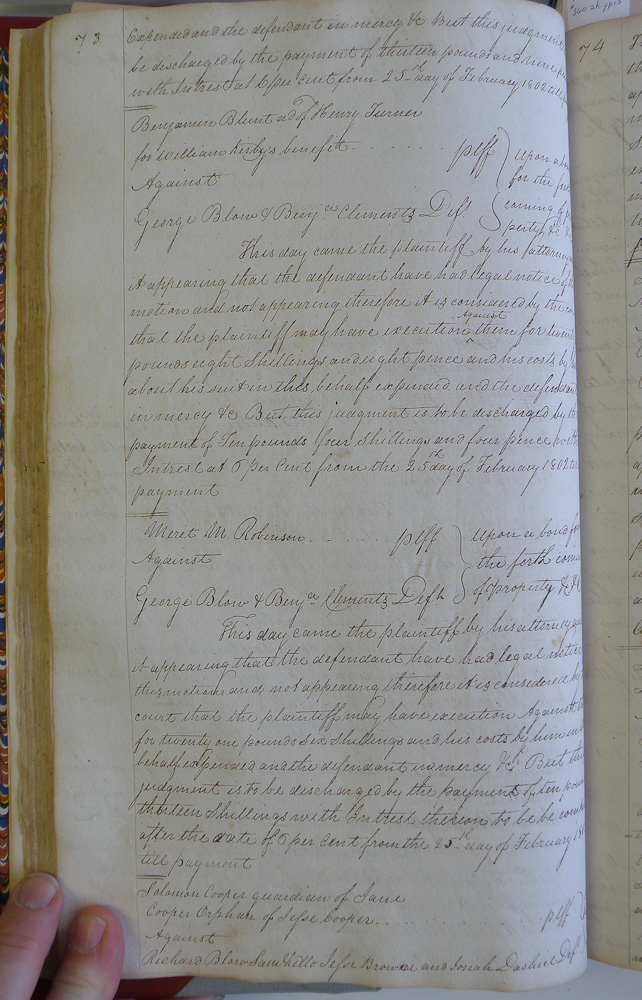 73
Expended and the defendant in mercy &c But this judgment
be discharged by the payment of thirteen pounds and nine
with Intrest at 6 per cent from 25th day of February 1802 till
Benjamin Blunt ad of Henry Turner
for William Kirbys benefit plff
Upon a
for the
Against
coming of
George Blow & Benja Clements Deft
perty &c
This day came the plaintiff by his attorney
it appearing that the defendant have had legal notice of
motion and not appearing therefore it is considered by the
Against
that the plaintiff may have execution them for twenty
pounds eight Shillings and eight pence and his costs by
about his suit in this behalf expended and the defendant
in mercy &c But this judgment is to be discharged by the
payment of Ten pounds four Shillings and four pence with
Intrest at 6 per Cent from the 25th day of February 1802 till
payment
Meret M. Robinson plff
Upon a bond for
Against
the forth coming
George Blow & Benja Clements Deft
of property &c
This day came the plaintiff by his attorney
it appearing that the defendant have had legal notice
this motion and not appearing therefore it is considered by
court that the plaintiff may have execution Against
for twenty one pounds Six Shillings and his costs by him in
behalf expended and the defendant in mercy &c But this
judgment is to be discharged by the payment of ten pounds
thirteen Shillings with Intrest thereon to be
after the date of 6 per Cent from the 25th day of February
till payment
Solomon Cooper guardian of Jane
Cooper Orphan of Jesse Cooper plff
Against
Richard Blow Jesse Browne and Josiah Dashiel Deft
74